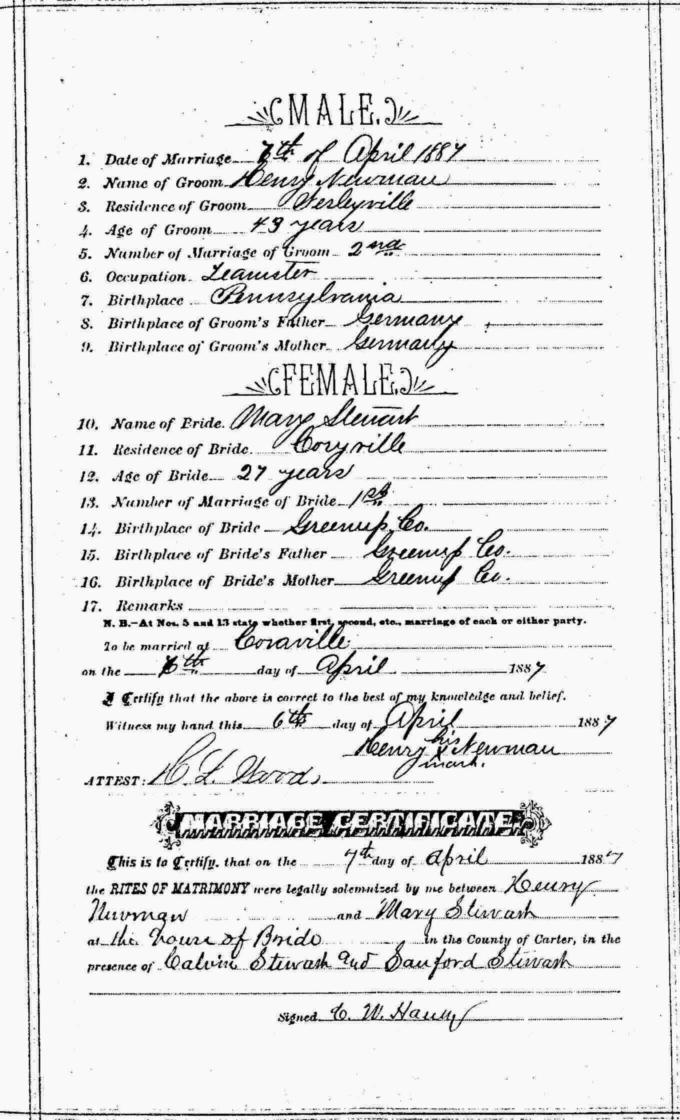 MALE.
1. Date of Marriage 7th of April 1887
2. Name of Groom Henry Newman
3. Residence of Groom
4. Age of Groom 43 years
5. Number of Marriage of Groom 2nd
6. Occupation Teamster
7. Birthplace Pennsylvania
8. Birthplace of Groom's Father Germany
9. Birthplace of Groom's Mother Germany
FEMALE.
10. Name of Bride. Mary Stewart
11. Residence of Bride. Coryville
12. Age of Bride 27 years
13. Number of Marriage of Bride 1st
14. Birthplace of Bride Greenup Co.
15. Birthplace of Bride's Father Greenup Co.
16. Birthplace of Bride's Mother Greenup Co.
17. Remarks
N. B.—At Nos. 5 and 13 state whether first, second, etc., marriage of each or either party.
To be married at Coraville
on the day of April 1887
I Certify that the above is correct to the best of my knowledge and belief.
Witness my hand this 6th day of April 1887
his
Henry x Newman
mark.
ATTEST: H. L. Wood.
MARRIAGE CERTIFICATE
This is to Certify, that on the 7th day of April 1887
the RITES OF MATRIMONY were legally solemnized by me between Henry
Newman and Mary Stewart
at the house of Bride in the County of Carter, in the
presence of Calvin Stewart and Sanford Stewart
Signed C. W.